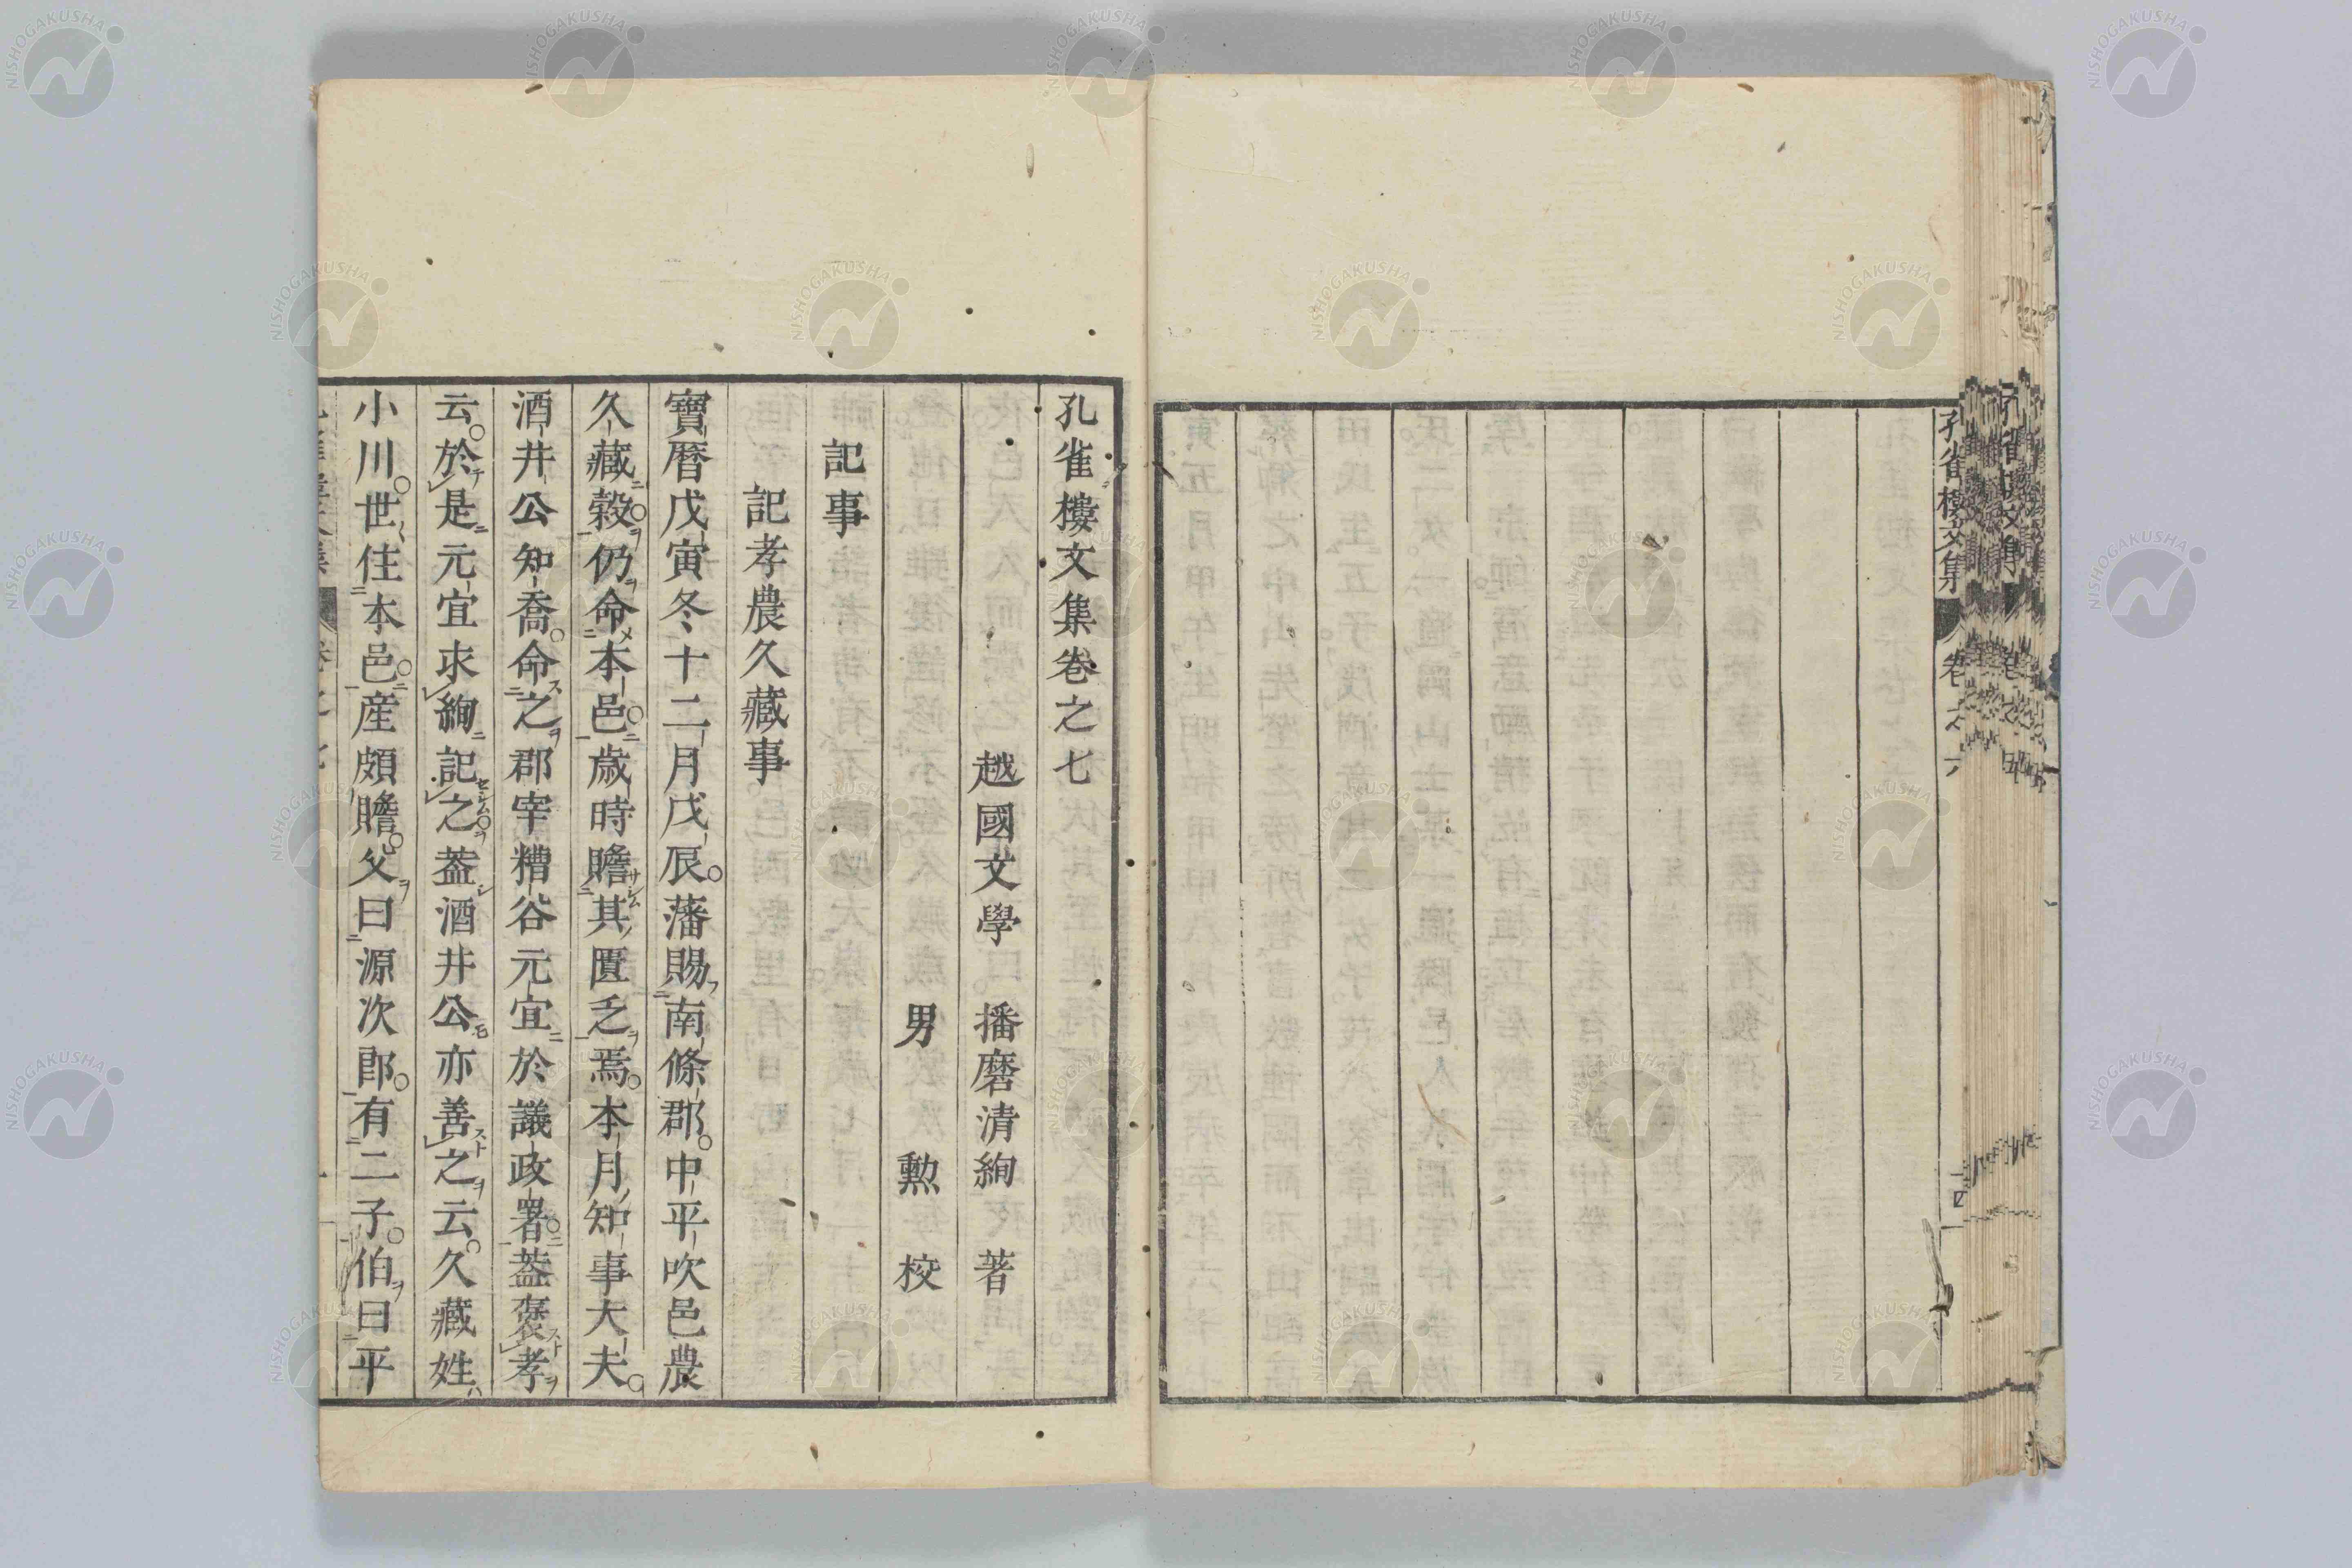 孔雀樓文集
卷之六
孔雀樓文集卷之七
越國文學 播磨清絢 著
男 勲 校
記事
記孝農久藏事
寶暦戊寅冬十二月戊辰。藩賜南條郡。中平吹邑農
久藏穀。仍命本邑。歳時贍其匱乏焉。本月知事大夫。
酒井公知喬。命之郡宰糟谷元宜於議政署。葢褒孝
云。於是元宜求絢記之。葢酒井公亦善之云。久藏姓
小川。世住本邑。産頗贍。父曰源次郎。有二子。伯曰平
NISHOGAKUSHA